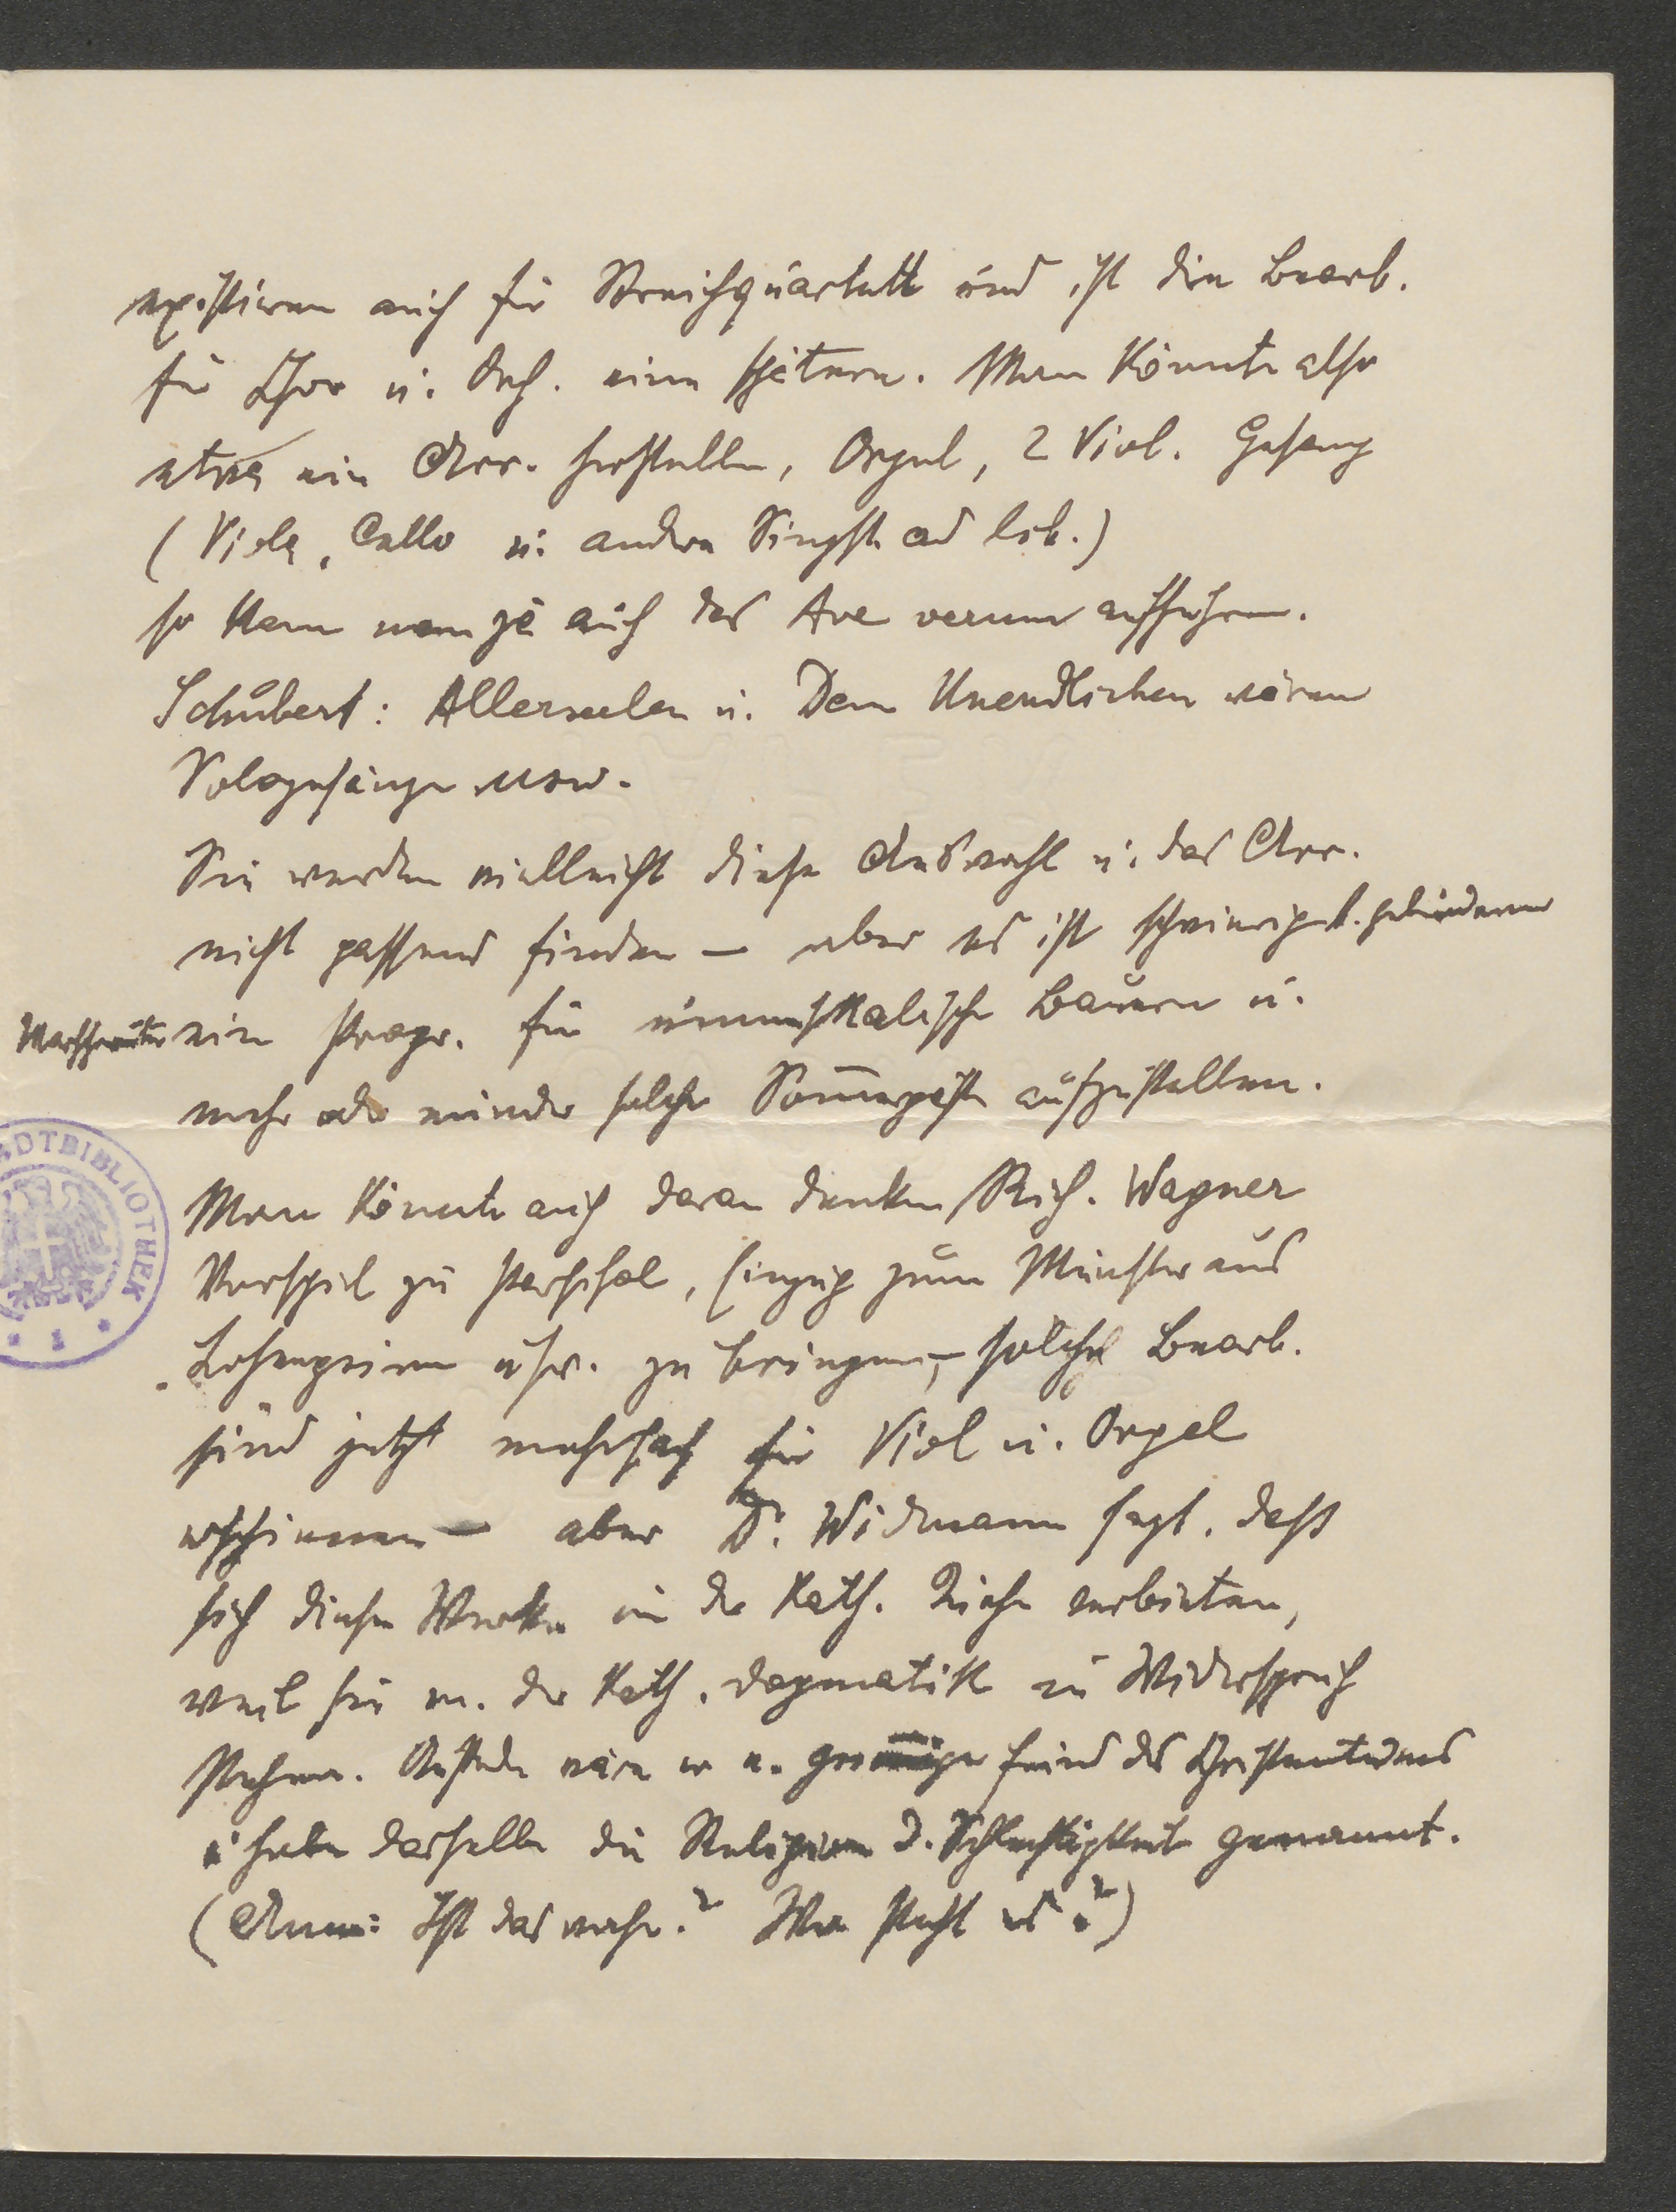 existieren auch für Streichquartett und ist die Bearb.
für Chor u. Orch. eine spätere. Man könnte also
etwa ein Arr. herstellen, Orgel, 2 Viol. Gesang
(Viola, Cello u. andere Singst. ad lib.)
so kann man ja auch das Ave verum aufführen.
Schubert: Allerseelen u. Dem Unendlichen wären
Sologesänge usw.
Sie werden vielleicht diese Auswahl u. das Arr.
nicht passend finden – aber es ist schwierig f.
ein Progr. für unmusikalische Bauern u.
mehr oder minder solche Sommergäste aufzustellen.
Man könnte auch daran denken Rich. Wagner
Vorspiel zu Parsifal, Einzug zum Münster aus
Lohengrin usw. zu bringen, – solche Bearb.
sind jetzt mehrfach für Viol u. Orgel
erschienen – aber Dr. Widmann sagt, dass
sich diese Werke in der kath. Kirche verbieten,
weil sie m. der kath. Dogmatik in Widerspruch
stehen. wäre er e. Feind des Christentums
u habe dasselbe die Religion d. Schlechtigkeit genannt.
(Anm: Ist das wahr? Wo steht es?)
STADTBIBLIOTHEK